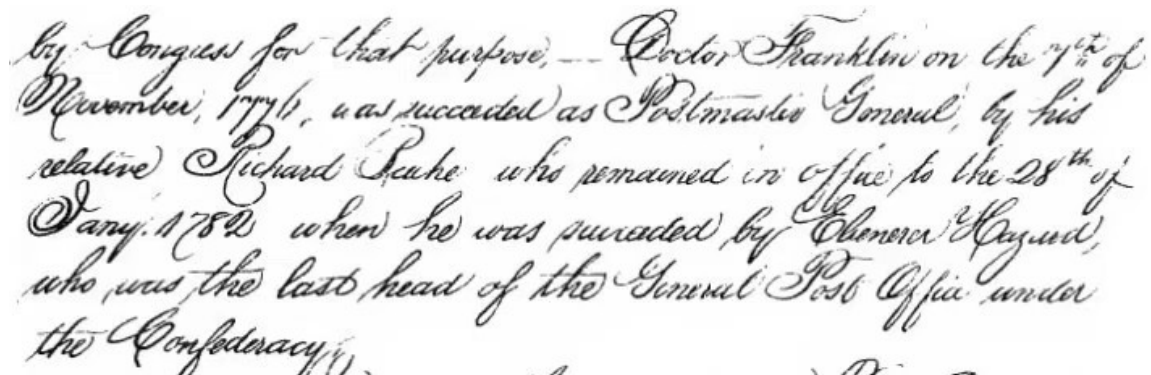 by Congress for that purpose, — Doctor Franklin on the 7th of
November, 1776, was succeeded as Postmaster General, by his
relative Richard Bache who remained in office to the 28th of
Jany. 1782 when he was succeeded by Ebenezer Hazard,
who was the last head of the General Post Office under
the Confederacy,